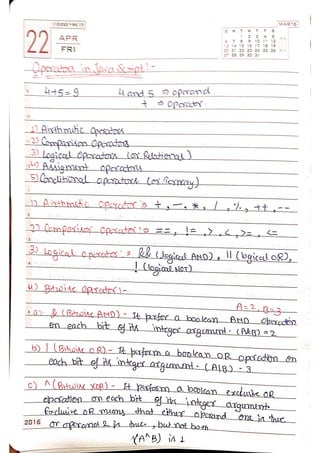 22
APR
FRI
MARIS
S M T W T F S
Operator in Java Script:-
4+5=9
4 and 5 ⇒ operand
+ ⇒ operator
1) Airthmetic operators
2) Comparison Operators
3) Logical Operators (or Relational)
4) Assigment operators
5) Conditional operators (or Ternary)
1) Airthmetic Operator:⇒ +, -, *, /, %, ++, --
2) Comparison operator:⇒ ==, !=, >, <, >=, <=
3) Logical operator:⇒ && (Logical AND), || (Logical OR),
! (Logical NOT)
4) Bitwise Operator:-
A=2, B=3
a) & (Bitwise AND) - It perfor a boolean AND operation
on each bit of its integer argument. (A&B) = 2
b) | (Bitwise OR) - It perform a boolean OR operation on
each bit of its integer argument. (A|B) = 3
c) ^ (Bitwise XOR) - It perform a boolean exclusive OR
operation on each bit of its integer argument.
Exclusive OR means that either operand one is true
or operand 2 is true, but not both
(A^B) is 1
2016